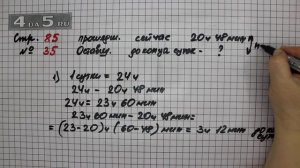 4 DA 5
GDZ
Стр. 85 прошерш. сейчас 20ч 48 мин
№ 35 Оставш. до конца суток - ?
1) 1 сутки = 24ч
24ч - 20ч 48 мин
24ч = 23ч 60 мин
23ч 60 мин - 20ч 48 мин =
= (23-20)ч (60-48) мин = 3ч 12 мин до кон
сут